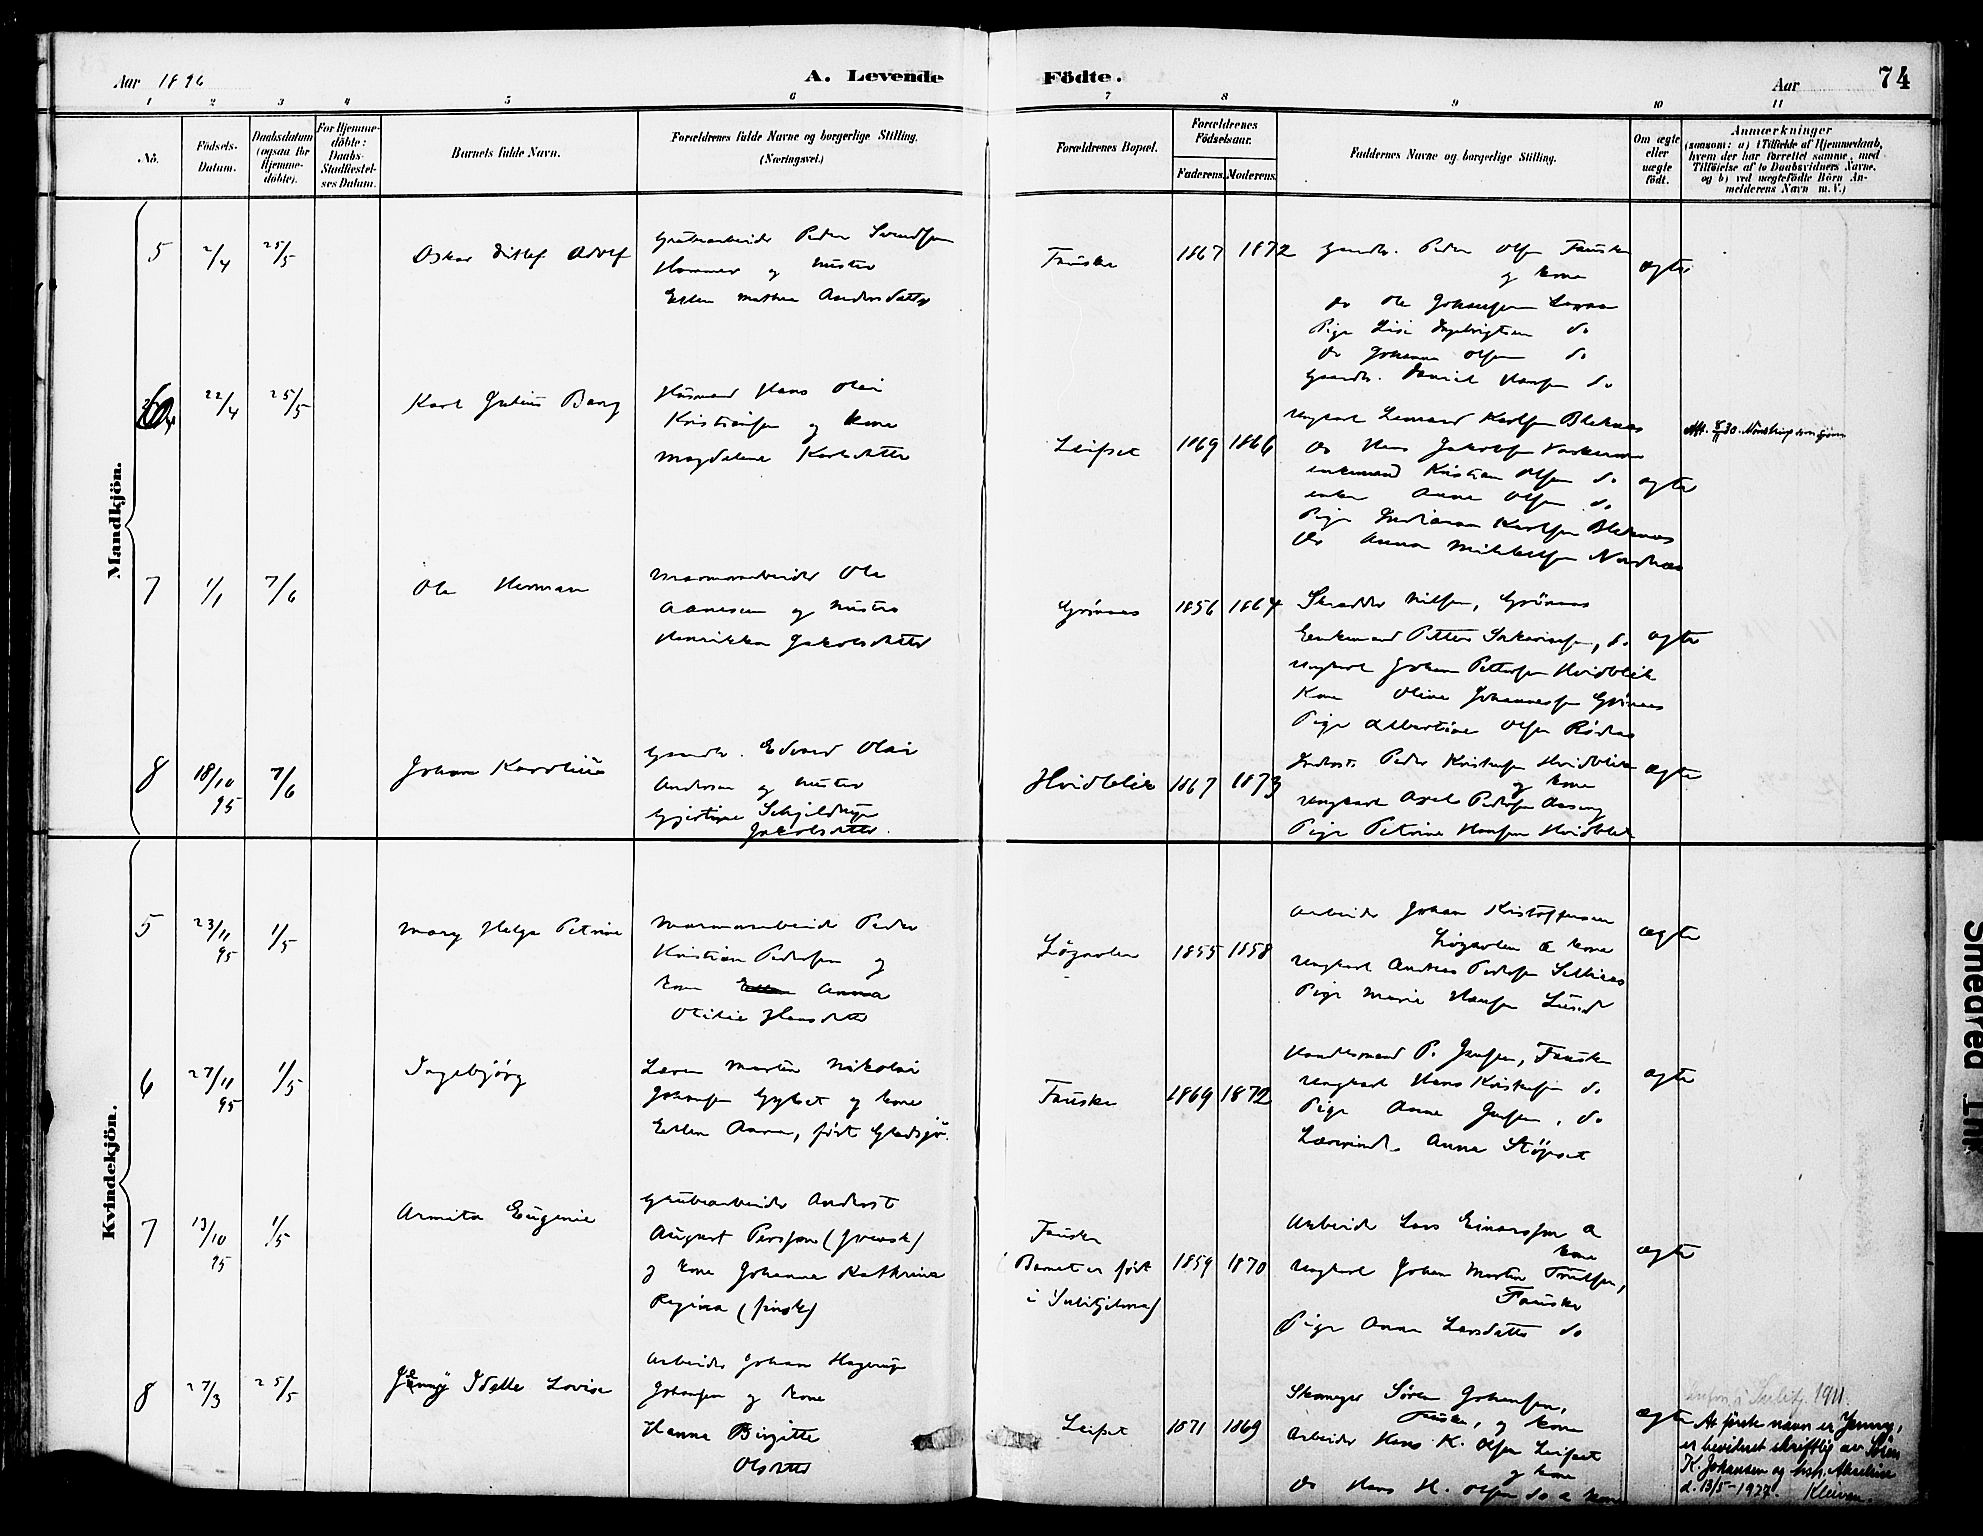 Aar 1896
A. Levende Födte.
Aar
74
1 2 3 4 5 6 7 8 9 10 11
No.
Födsels-Datum.
Daabsdatum (ogsaa for Hjemme-döbte).
For Hjemme-döbte: Daabs-Stadfæstel-ses Datum.
Barnets fulde Navn.
Forældrenes fulde Navne og borgerlige Stilling. (Næringsvei.)
Forældrenes Bopæl.
Forældrenes Födselsaar.
Faderens. Moderens.
Faddernes Navne og borgerlige Stilling.
Om ægte eller uægte födt.
Anmærkninger
(saasom: a) i Tilfælde af Hjemmedaab, hvem der har forrettet samme, med Tilföielse af to Daabsvidners Navne, og b) ved uægtefödte Börn An-melderens Navn m. V.)
Mandkjön.
5 2/4 25/5 Oskar Ditlef Adolf
Grubearbeider Peder
og hustru
Ellen Mathea Andersdatter
Fauske 1867 1872
Gaardb. Peder Olsen Fauske
og kone
do Ole Johansen
Pige Lise Ingebrigtsen do
do Johanna Olsen do
Gaardb. Daniel Hansen do
ægte
6 22/4 25/5 Karl Julius Bang
Husmand Hans Olai
Kristiansen og kone
Magdalena Karlsdatter
Leifset 1869 1866
Ungkarl Lennard Karlsen Bleknæs
do Hans Jakobsen
Enkemand Kristian Olsen do
enke Anna Olsen do
Pige Karlsen Bleknæs
do Anna Mikkelsen
ægte
7 1/1 7/6 Ole Herman
Marmorarbeider Ole
Aanesen og hustru
Henrikka Jakobsdatter
Grønaas 1856 1864
Skrædder Nilsen, Grønaas
Enkemand Petter Sakariasen, do
Ungkarl Johan Pettersen Hvidblik
Kone Oline Johannessen Grønaas
Pige Albertine Olsen
ægte
8 18/10 95 7/6 Johan Karolius
Gaardb. Edvard Olai
Andersen og hustru
Gjertine Schjeldrup
Jakobsdatter.
Hvidblik 1867 1873
Peder Kristensen Hvidblik
og kone
Ungkarl Axel Pedersen
Pige Petrine Hansen Hvidblik
ægte
Kvindekjön.
5 23/11 95 1/5 Mary Helga Petrine
Marmorarbeider Peder
Kristian Pedersen og
kone Anna
Otilie Hansdatter
Løgavlen 1855 1858
Arbeider Johan Kristoffersen
Løgavlen & kone
Ungkarl Andreas Pedersen
Pige Marie Hansen Lund
ægte
6 27/11 95 1/5 Ingebjørg
Lærer Martin Nikolai
Johansen og kone
Ellen Anna, født Gladsjø.
Fauske 1869 1872
Handelsmand P. Jensen, Fauske
Ungkarl Hans Kristensen do
Pige Anna Jensen, do
Lærerinde Anna Støpset
ægte
7 13/10 95 1/5 Armita Eugenie
Grubearbeider Anders
August Persson (svensk)
og kone Johanna Kathrina
Regina (finsk)
Fauske
(Barnet er født
i Sulitjelma)
1859 1870
Arbeider Lars Einarssen &
kone
Ungkarl Johan Martin
Fauske
Pige Anna Larsdatter do
ægte
8 27/3 25/5 Jenny Idette Lovise
Arbeider Johan Hagerup
Johansen og kone
Hanna Birgitte
Olsdatter
Leifset 1871 1869
Skomager Søren Johansen,
Fauske, og kone
Arbeider Hans K. Olsen Leifset
og kone
do Hans H. Olsen do & kone
ægte
1911.
At første navn er Jenny,
er bevidnet skriftlig av Søren
K. Johansen og
d. 13/5-1927. Kleiven.
Smedred Thr